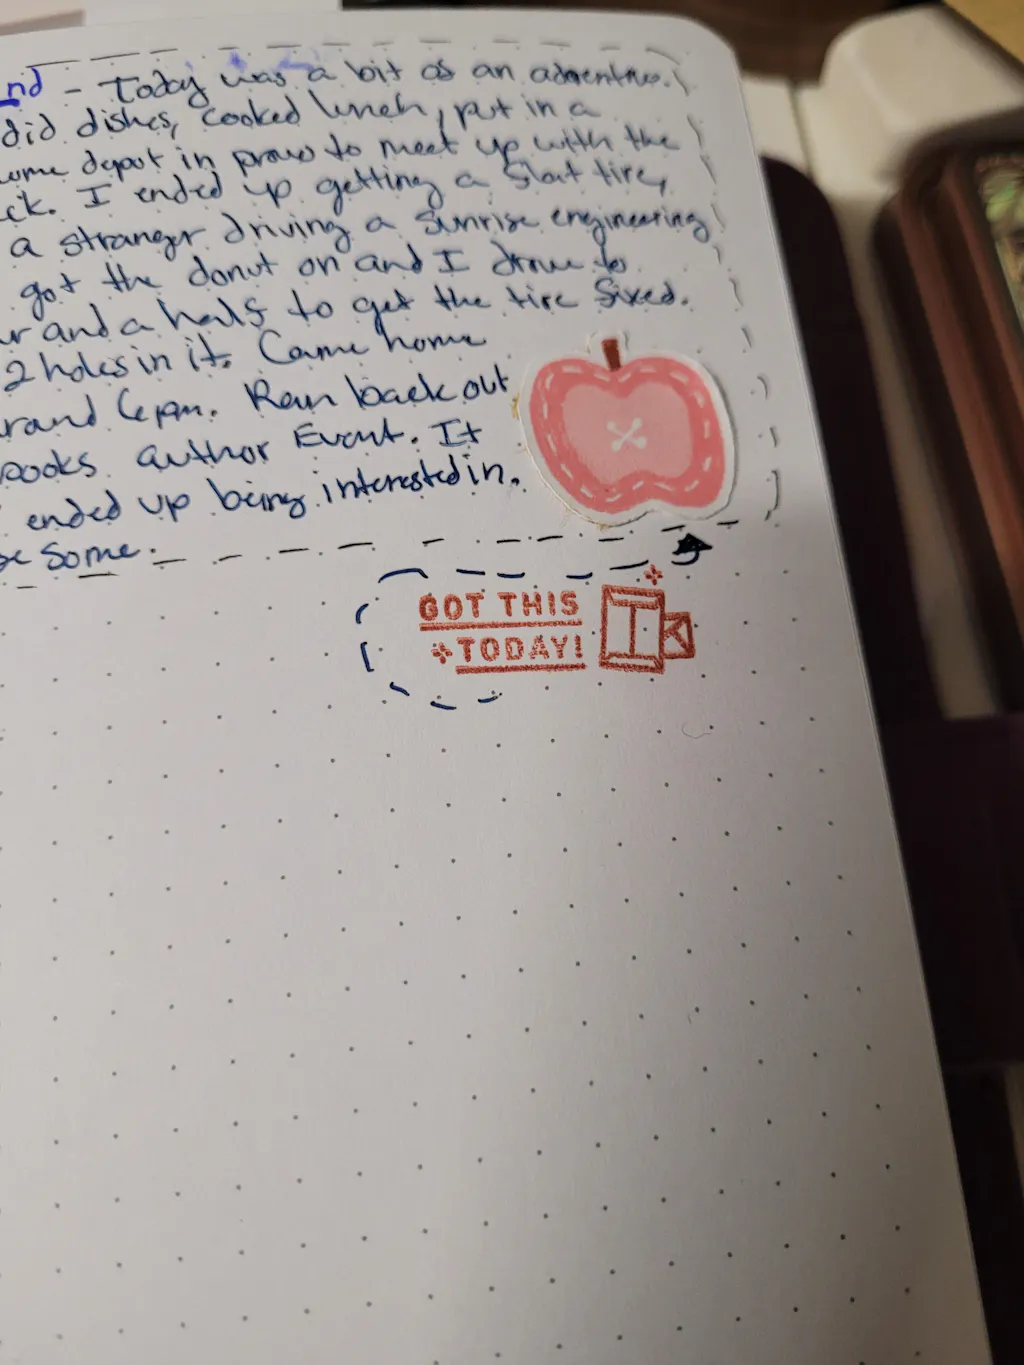 nd - Today was a bit of an adventure.
did dishes, cooked lunch, put in a
ome depot in provo to meet up with the
ck. I ended up getting a flat tire,
a stranger driving a sunrise engineering
got the donut on and I drove to
ur and a half to get the tire fixed.
2 holes in it. Came home
around 6pm. Ran back out
books author Event. It
ended up being interested in.
be some.
GOT THIS
TODAY!